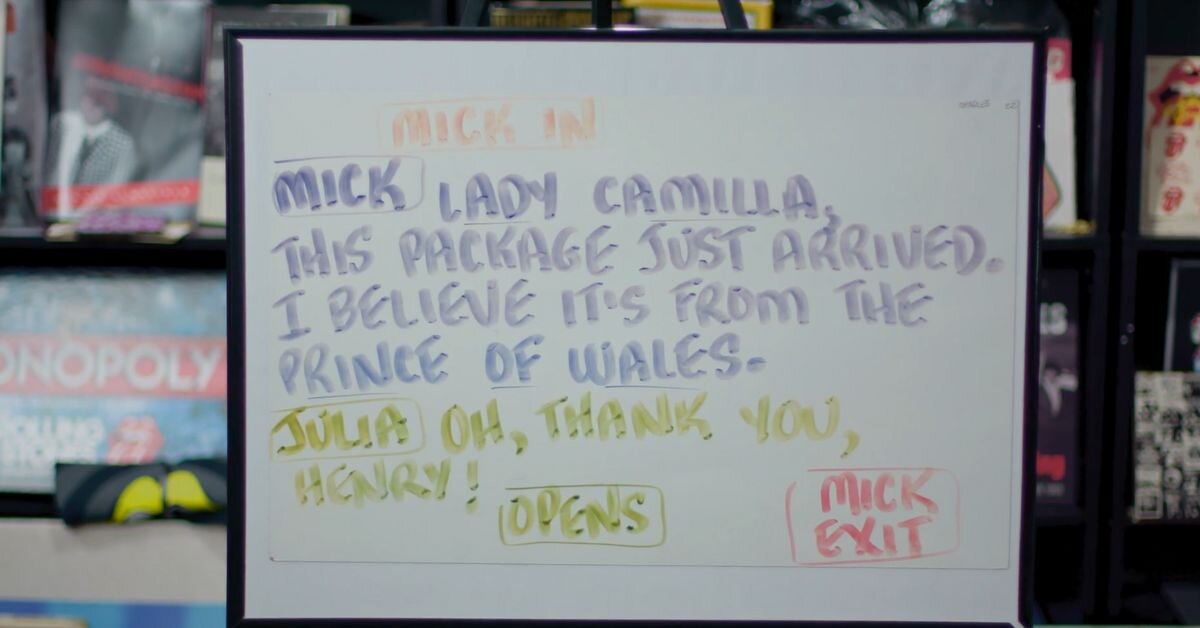 MICK IN
MICK LADY CAMILLA,
THIS PACKAGE JUST ARRIVED.
I BELIEVE IT'S FROM THE
PRINCE OF WALES.
JULIA OH, THANK YOU,
HENRY!
OPENS
MICK
EXIT
ONOPOLY